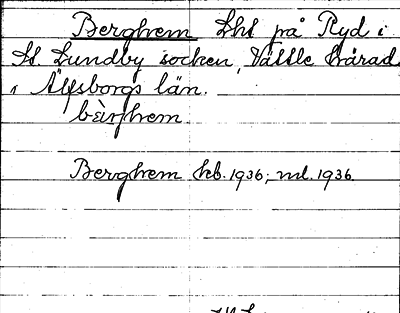 Berghem Lht på Ryd i
St. Lundby socken, Vättle härad
i Älfsborgs län.
bàrghem.
Berghem kb. 1936; ml. 1936.